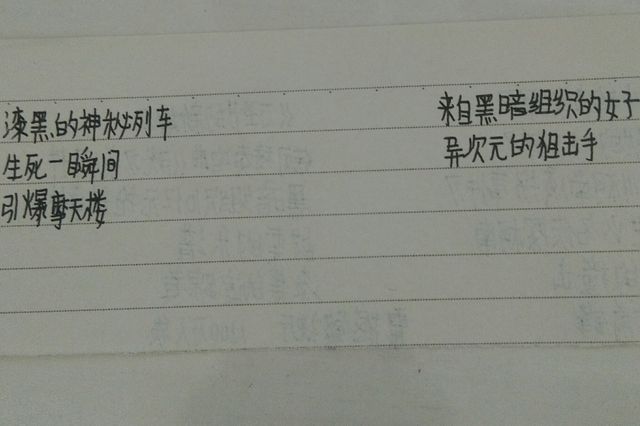 漆黑的神秘列车
生死一瞬间
引爆摩天楼
来自黑暗组织的女子
异次元的狙击手